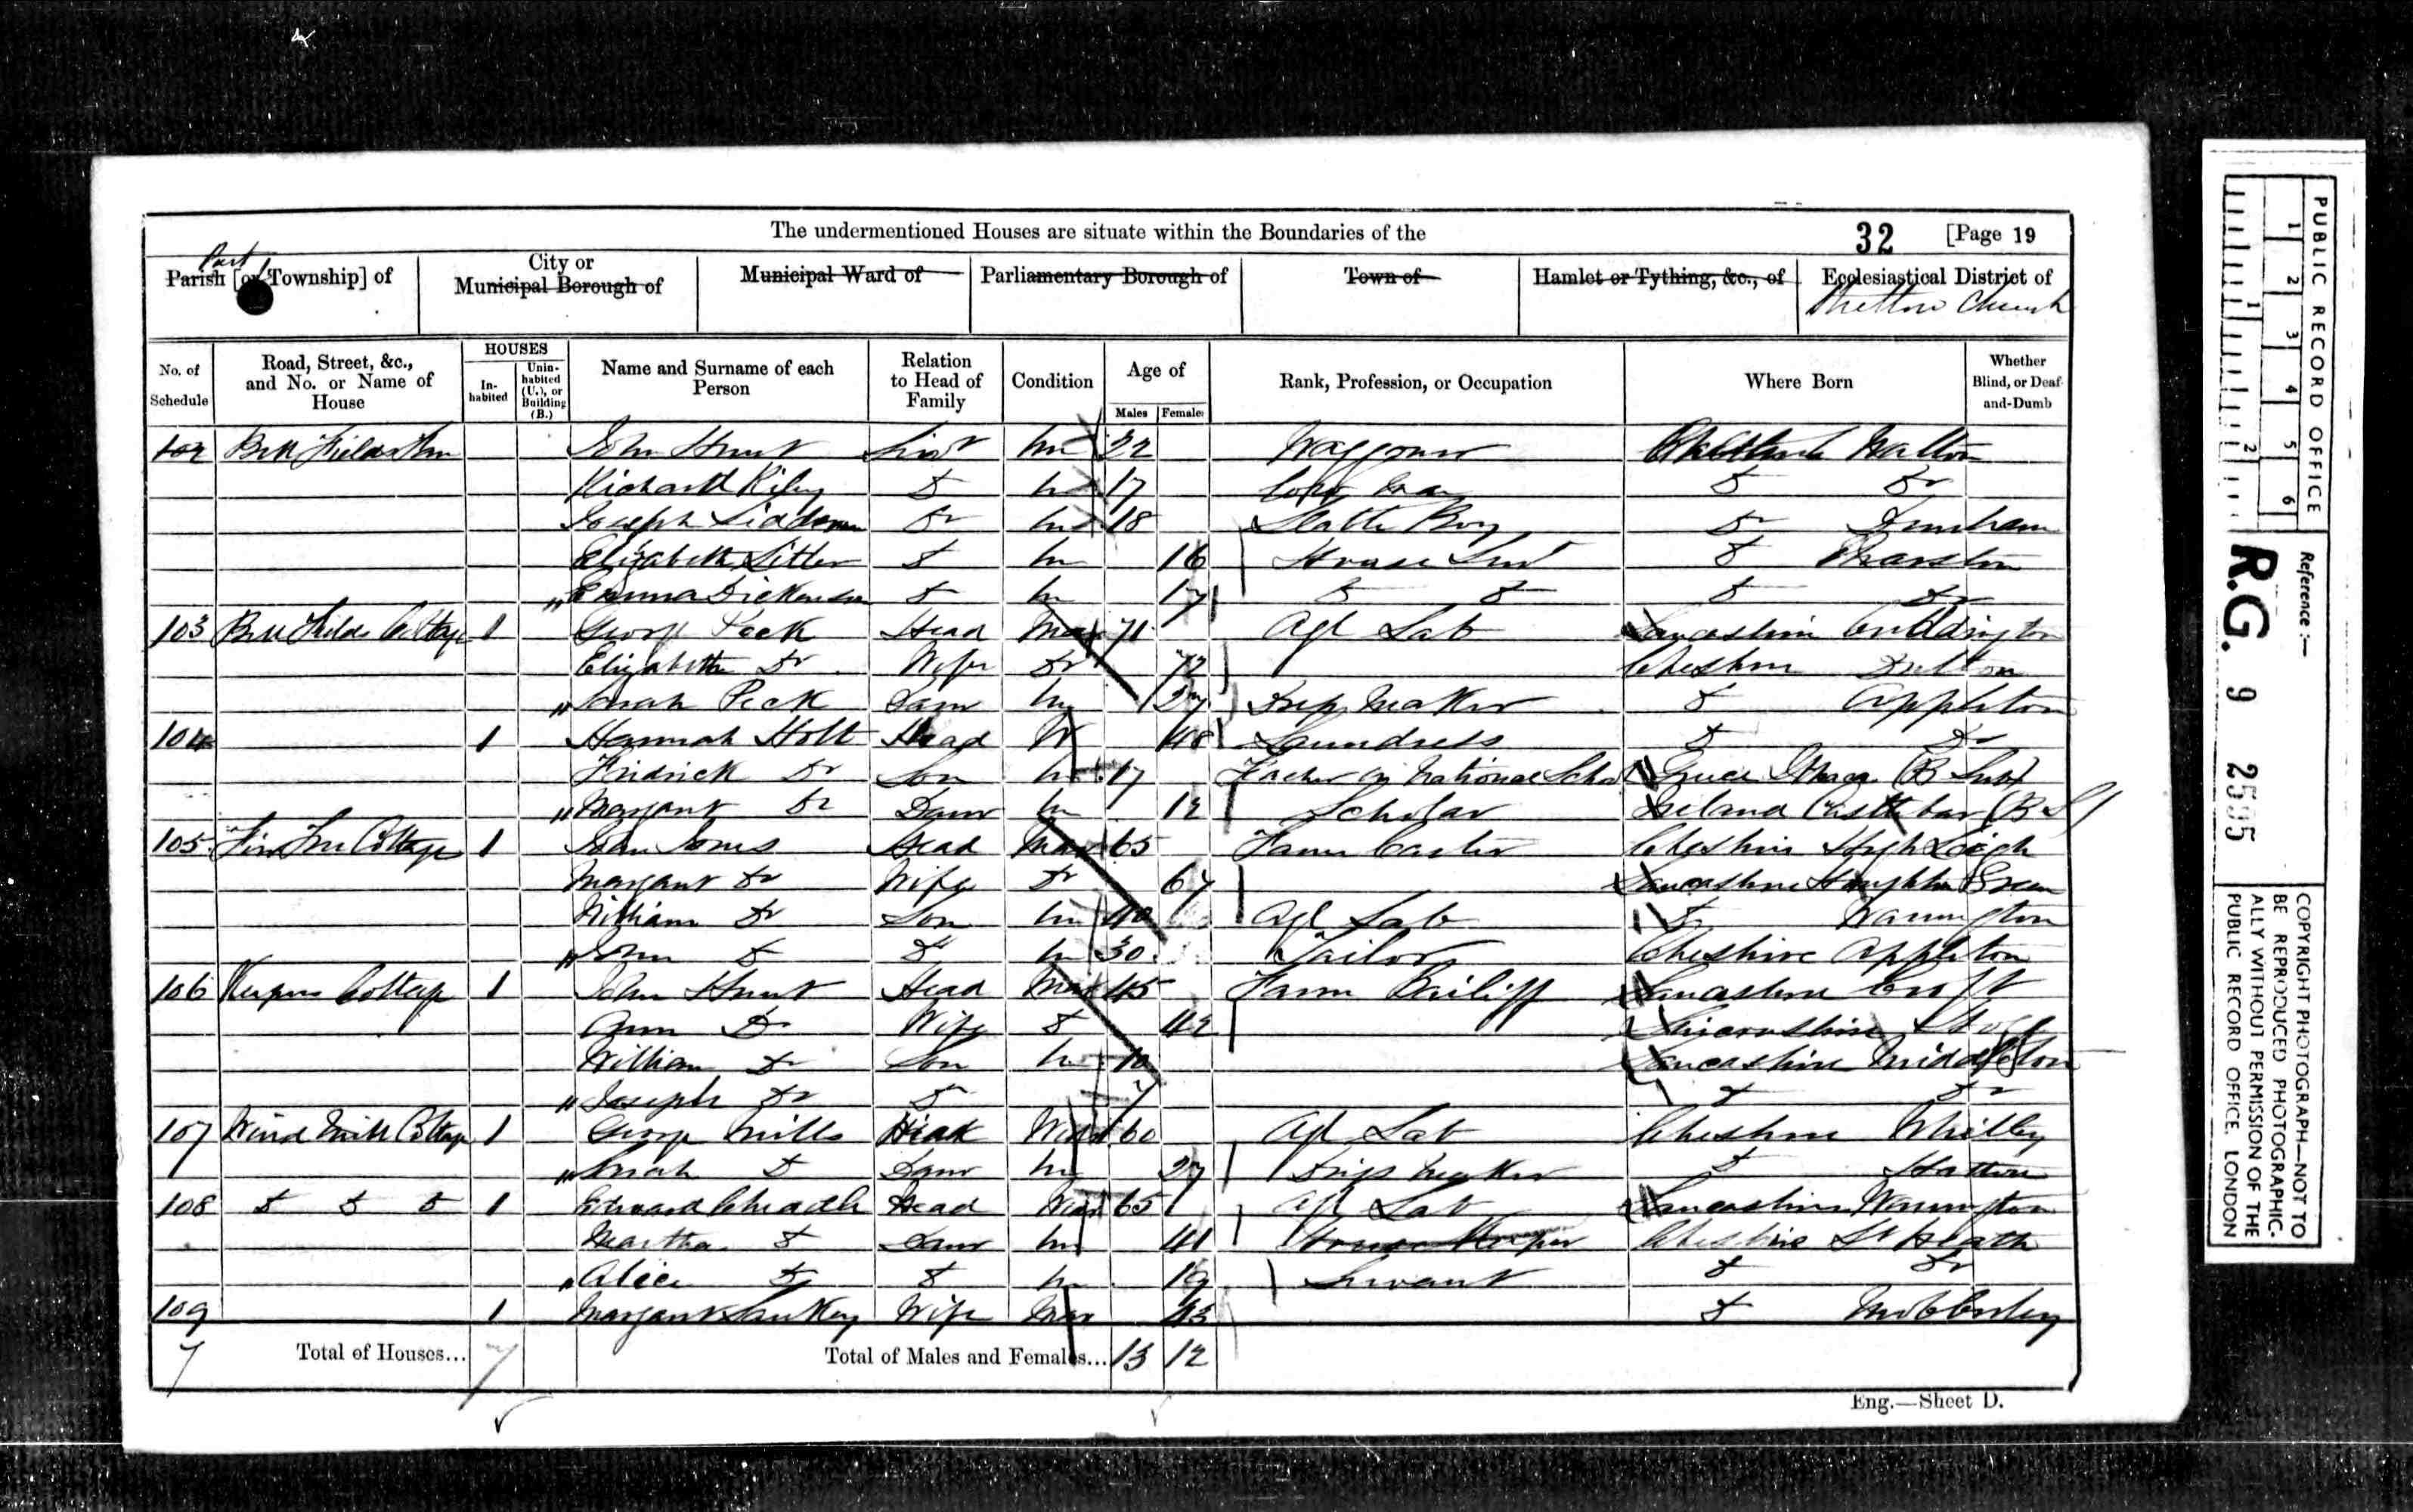 The undermentioned Houses are situate within the Boundaries of the
32 [Page 19
Part
Parish [or Township] of
City or Municipal Borough of
Municipal Ward of
Parliamentary Borough of
Town of
Hamlet or Tything, &c., of
Ecclesiastical District of
Church
No. of Schedule
Road, Street, &c., and No. or Name of House
HOUSES
In-habited
Unin-habited (U.), or Building (B.)
Name and Surname of each Person
Relation to Head of Family
Condition
Age of
Males
Females
Rank, Profession, or Occupation
Where Born
Whether Blind, or Deaf-and-Dumb
102 John Hunt Servt Un 22 Waggoner Cheshire Walton
Richard Do Un 17 Do Do
Joseph Do Un 18 Boy Do
Elizabeth Do Un 16 House Servt Do
" Emma Dickenson Do Un 17 Do Do Do Do
103 1 George Peck Head Mar 71 Agl Lab Lancashire
Elizabeth Do Wife Do 72 Cheshire Dutton
" Sarah Peck Daur Un 27 Maker Do Appleton
104 1 Hannah Holt Head W 48 Laundress Do Do
Fridrick Do Son Un 17 Teacher in National Schol (B Subt)
" Margaret Do Daur Un 12 Scholar Ireland Castlebar (B S)
105 Fir Tree Cottage 1 John Jones Head Mar 65 Farm Carter Cheshire High Leigh
Margaret Do Wife Do 67 Lancashire Houghton Green
William Do Son Un 40 Agl Lab Do Warrington
" John Do Do Un 30 Tailor Cheshire Appleton
106 Cottage 1 John Hunt Head Mar 45 Farm Bailiff Lancashire Croft
Ann Do Wife Do 42
William Do Son Un 10 Lancashire Middleton
" Joseph Do Do 7 Do Do
107 Wind Mill Cottage 1 George Mills Head Widr 60 Agl Lab Cheshire Whitley
" Sarah Do Daur Un 27 Maker Do Hatton
108 Do Do Do 1 Edward Cheadle Head Widr 65 Agl Lab Lancashire Warrington
Martha Do Daur Un 41 House Keeper Cheshire
" Alice Do Do Un 19 Servant Do Do
109 1 Margaret Sankey Wife Mar 43 Do Mobberley
7 Total of Houses... 7 Total of Males and Females... 13 12
Eng.—Sheet D.
PUBLIC RECORD OFFICE
1 2 3 4 5 6
1 2
Reference :—
R.G. 9 2595
COPYRIGHT PHOTOGRAPH—NOT TO
BE REPRODUCED PHOTOGRAPHIC-
ALLY WITHOUT PERMISSION OF THE
PUBLIC RECORD OFFICE, LONDON